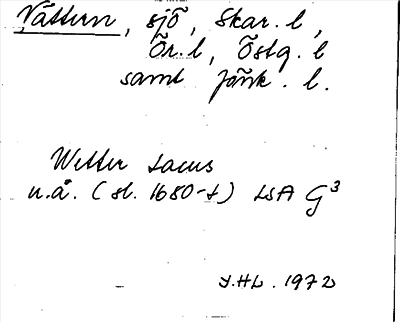 Vättern, sjö, Skar. l,
Ör. l, Östg. l
samt Jönk. l.
Wetter Lacus
u.å. (sl. 1680-t) LSA G3
I.HL. 1972